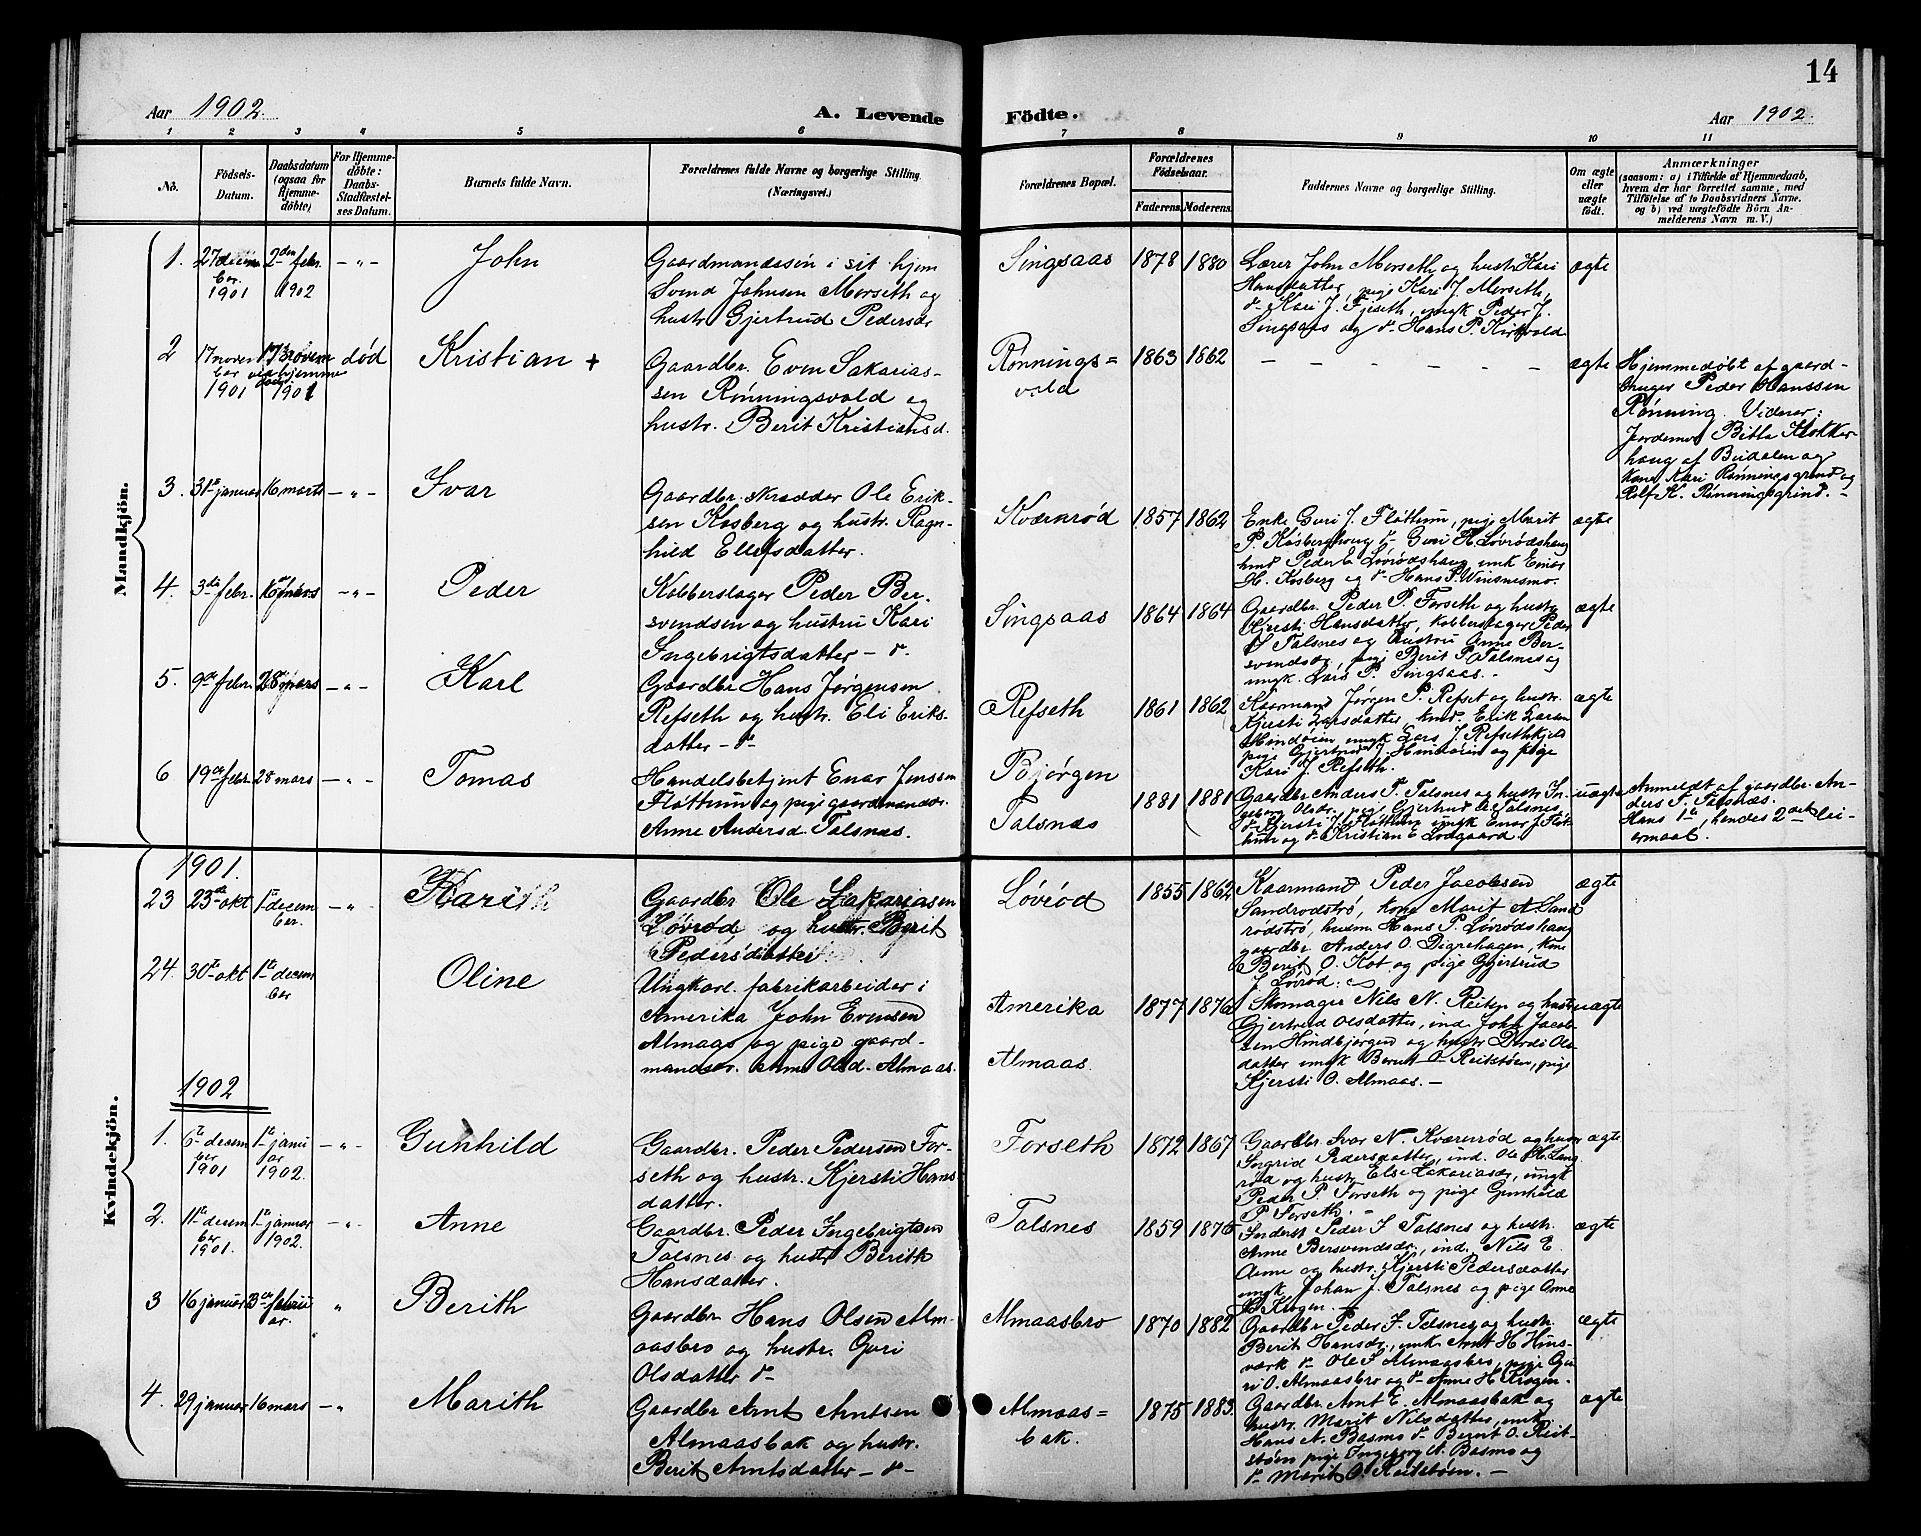 14
Aar 1902.
A. Levende Födte.
Aar 1902.
1 2 3 4 5 6 7 8 9 10 11
Nö.
Födsels-
Datum.
Daabsdatum
(ogsaa for
Hjemme-
döbte)
For Hjemme-
döbte:
Daabs-
Stadfæstel-
ses Datum.
Barnets fulde Navn.
Forældrenes fulde Navne og borgerlige Stilling.
(Næringsvei.)
Forældrenes Bopæl.
Forældrenes
Födselsaar.
Faderens. Moderens.
Faddernes Navne og borgerlige Stilling.
Om ægte
eller
uægte
födt.
Anmærkninger
(saasom: a) i Tilfælde af Hjemmedaab,
hvem der har forrettet samme, med
Tilföielse af to Daabsvidners Navne.
og b) ved uægtefödte Börn An-
melderens Navn m. V.)
Mandkjön.
1. 27 decem
ber.
1901
2den febr.
1902
John
Gaardmandssön i sit hjem
Svend Johnsen Morseth og
hustr Gjertrud Pedersdr
Singsaas 1878 1880
Lærer John Morseth og hustr Kari
Hansdatter, pige Kari J. Morseth,
Singsaas og do Hans P. Kirkvold
ægte
2 17 novem
ber
1901
17 novem
1901
død
Kristian +
Gaardbr. Even Sakarias-
sen Rønningsvold og
hustr. Berit Kristiansd.
Rønnings=
vold
1863 1862
ægte
Hjemmedøbt af gaard-
bruger Peder Hanssen
Rønning. Vidner:
Jordemor Bitla Klokker-
haug af Budalen og
Kone Kari Rønningsgrind og
Rolf K. Rønningsgrind. -
3. 31te januar 16 marts
Ivar
Gaardbr. skrædder Ole Erik-
sen Kosberg og hustr. Ragn-
hild Ellefsdatter.
Kværnrød 1857 1862
Enke Guri J. Fløttum, pige Marit
P. Kosberghaug do Guri H. Løvrødshaug
H. Kosberg og do Hans P. Winsnesmo.
ægte
4. 3die febr. 16 mars
Peder
Kobberslager Peder Ber-
svendsen og hustru Kari
Ingebrigtsdatter - do
Singsaas 1864 1864
Gaardbr. Peder P. Forseth og hustr
Kjersti Hansdatter, kobberslager Peder
S Talsnes og hustru Anne Ber-
svendsdr, pige Berit P. Talsnes og
ungk. Lars P. Singsaas. -
ægte
5. 9de febr. 28 mars
Karl
Gaardbr Hans Jørgensen
Refseth og hustr. Eli Eriks-
datter - do -
Refseth 1861 1862
Kaarmand Jørgen P. Refset og hustr.
Kjersti Larsdatter, Erik Larsen
Hindøien ungk Lars J. Refsethkjeld
pige Gjertrud J. Hindøien og pige
Kari J. Refseth.
ægte
6 19de febr. 28 mars
Tomas
Handelsbetjent Enar Jenssen
Fløttum og pige gaardmandsdr.
Anne Andersd Talsnæs.
Bjørgen
Talsnæs
1881 1881
Gaardbr Anders F. Talsnes og hustr In-
geborg Olsdr, pige Gjertrud A. Talsnes
do Kjersti J. Fløttum ungk Enar J. Fløt-
tum og do Kristian E Lodgaard
uægte
Anmeldt af gaardbr. An-
ders F. Talsnæs.
Hans 1te, hendes 2det lei-
ermaal.
Kvindekjön.
1901.
23 23de okt 1te decem
ber.
Karith
Gaardbr Ole Sakariasen
Løvrød, og hustr. Berit
Pedersdatter
Løvrød 1855 1862
Kaarmand Peder Jacobsen
Sandrodstrø, kone Marit A. Sand
rødstrø, husm Hans P. Løvrødshaug
gaardbr Anders O. Digrehagen, kone
Berit O. Kot og pige Gjertrud
J. Løvrød.
ægte
24. 30te okt 1te decem
ber
Oline
Ungkarl. fabrikarbeider i
Amerika John Evensen
Almaas og pige gaard-
mandsdr. Anne Olsd. Almaas.
Amerika
Almaas.
1877 1876
Skomager Nils N. Reiten og hustr
Gjertrud Olsdatter, ind. John Jacob-
sen Hindbjørgen og hustr Dordi Ols-
datter ungk Bernt O. Reitstøen, pige
Kjersti O. Almaas. -
uægte
1902
1. 6te decem
ber
1901
1te janu
ar
1902.
Gunhild
Gaardbr. Peder Pedersen For-
seth og hustr. Kjersti Hans
datter.
Forseth 1872 1867
Gaardbr Ivar N. Kværnrød og hustr
Ingrid Pedersdatter, ind. Ole H. Lang
rød og hustr Else Sakariasdr, ungk
Peder P. Forseth og pige Gunhild
P Forseth. -
ægte
2. 11te decem
ber
1901.
1te januar
1902.
Anne
Gaardbr. Peder Ingebrigtsen
Talsnes og hustr Berith
Hansdatter.
Talsnes 1859 1875
Inderst Peder S. Talsnes og hustr.
Anne Bersvendsdr, ind. Nils E.
Aune og hustr. Kjersti Pedersdatter
ungk Johan J. Talsnes og pige Anne
B Krogen. -
ægte
3 16 januar 3die febru
ar.
Berith
Gaardbr Hans Olsen Alm-
aasbro og hustr. Guri
Olsdatter do -
Almaasbro 1870 1882
Gaardbr Peder J. Talsnes og hustr.
Berit Hansdr., ungk. Arnt H Huns-
værk do Ole S Almaasbro, pige Gu-
ri O. Almaasbro og do Anne H. Krogen.
ægte
4. 29 januar 16 mars
Marith
Gaardbr Arnt Arntsen
Almaasbak og hustr.
Berit Arntsdatter - do -
Almaas=
bak.
1875 1883.
Gaardbr Arnt E. Almaasbak og
hustr. Marit Nilsdatter, ungk
Hans A. Basmo do Bernt O. Reit-
støen pige Ingeborg A. Basmo og
do Marit O. Reitstøen. -
ægte